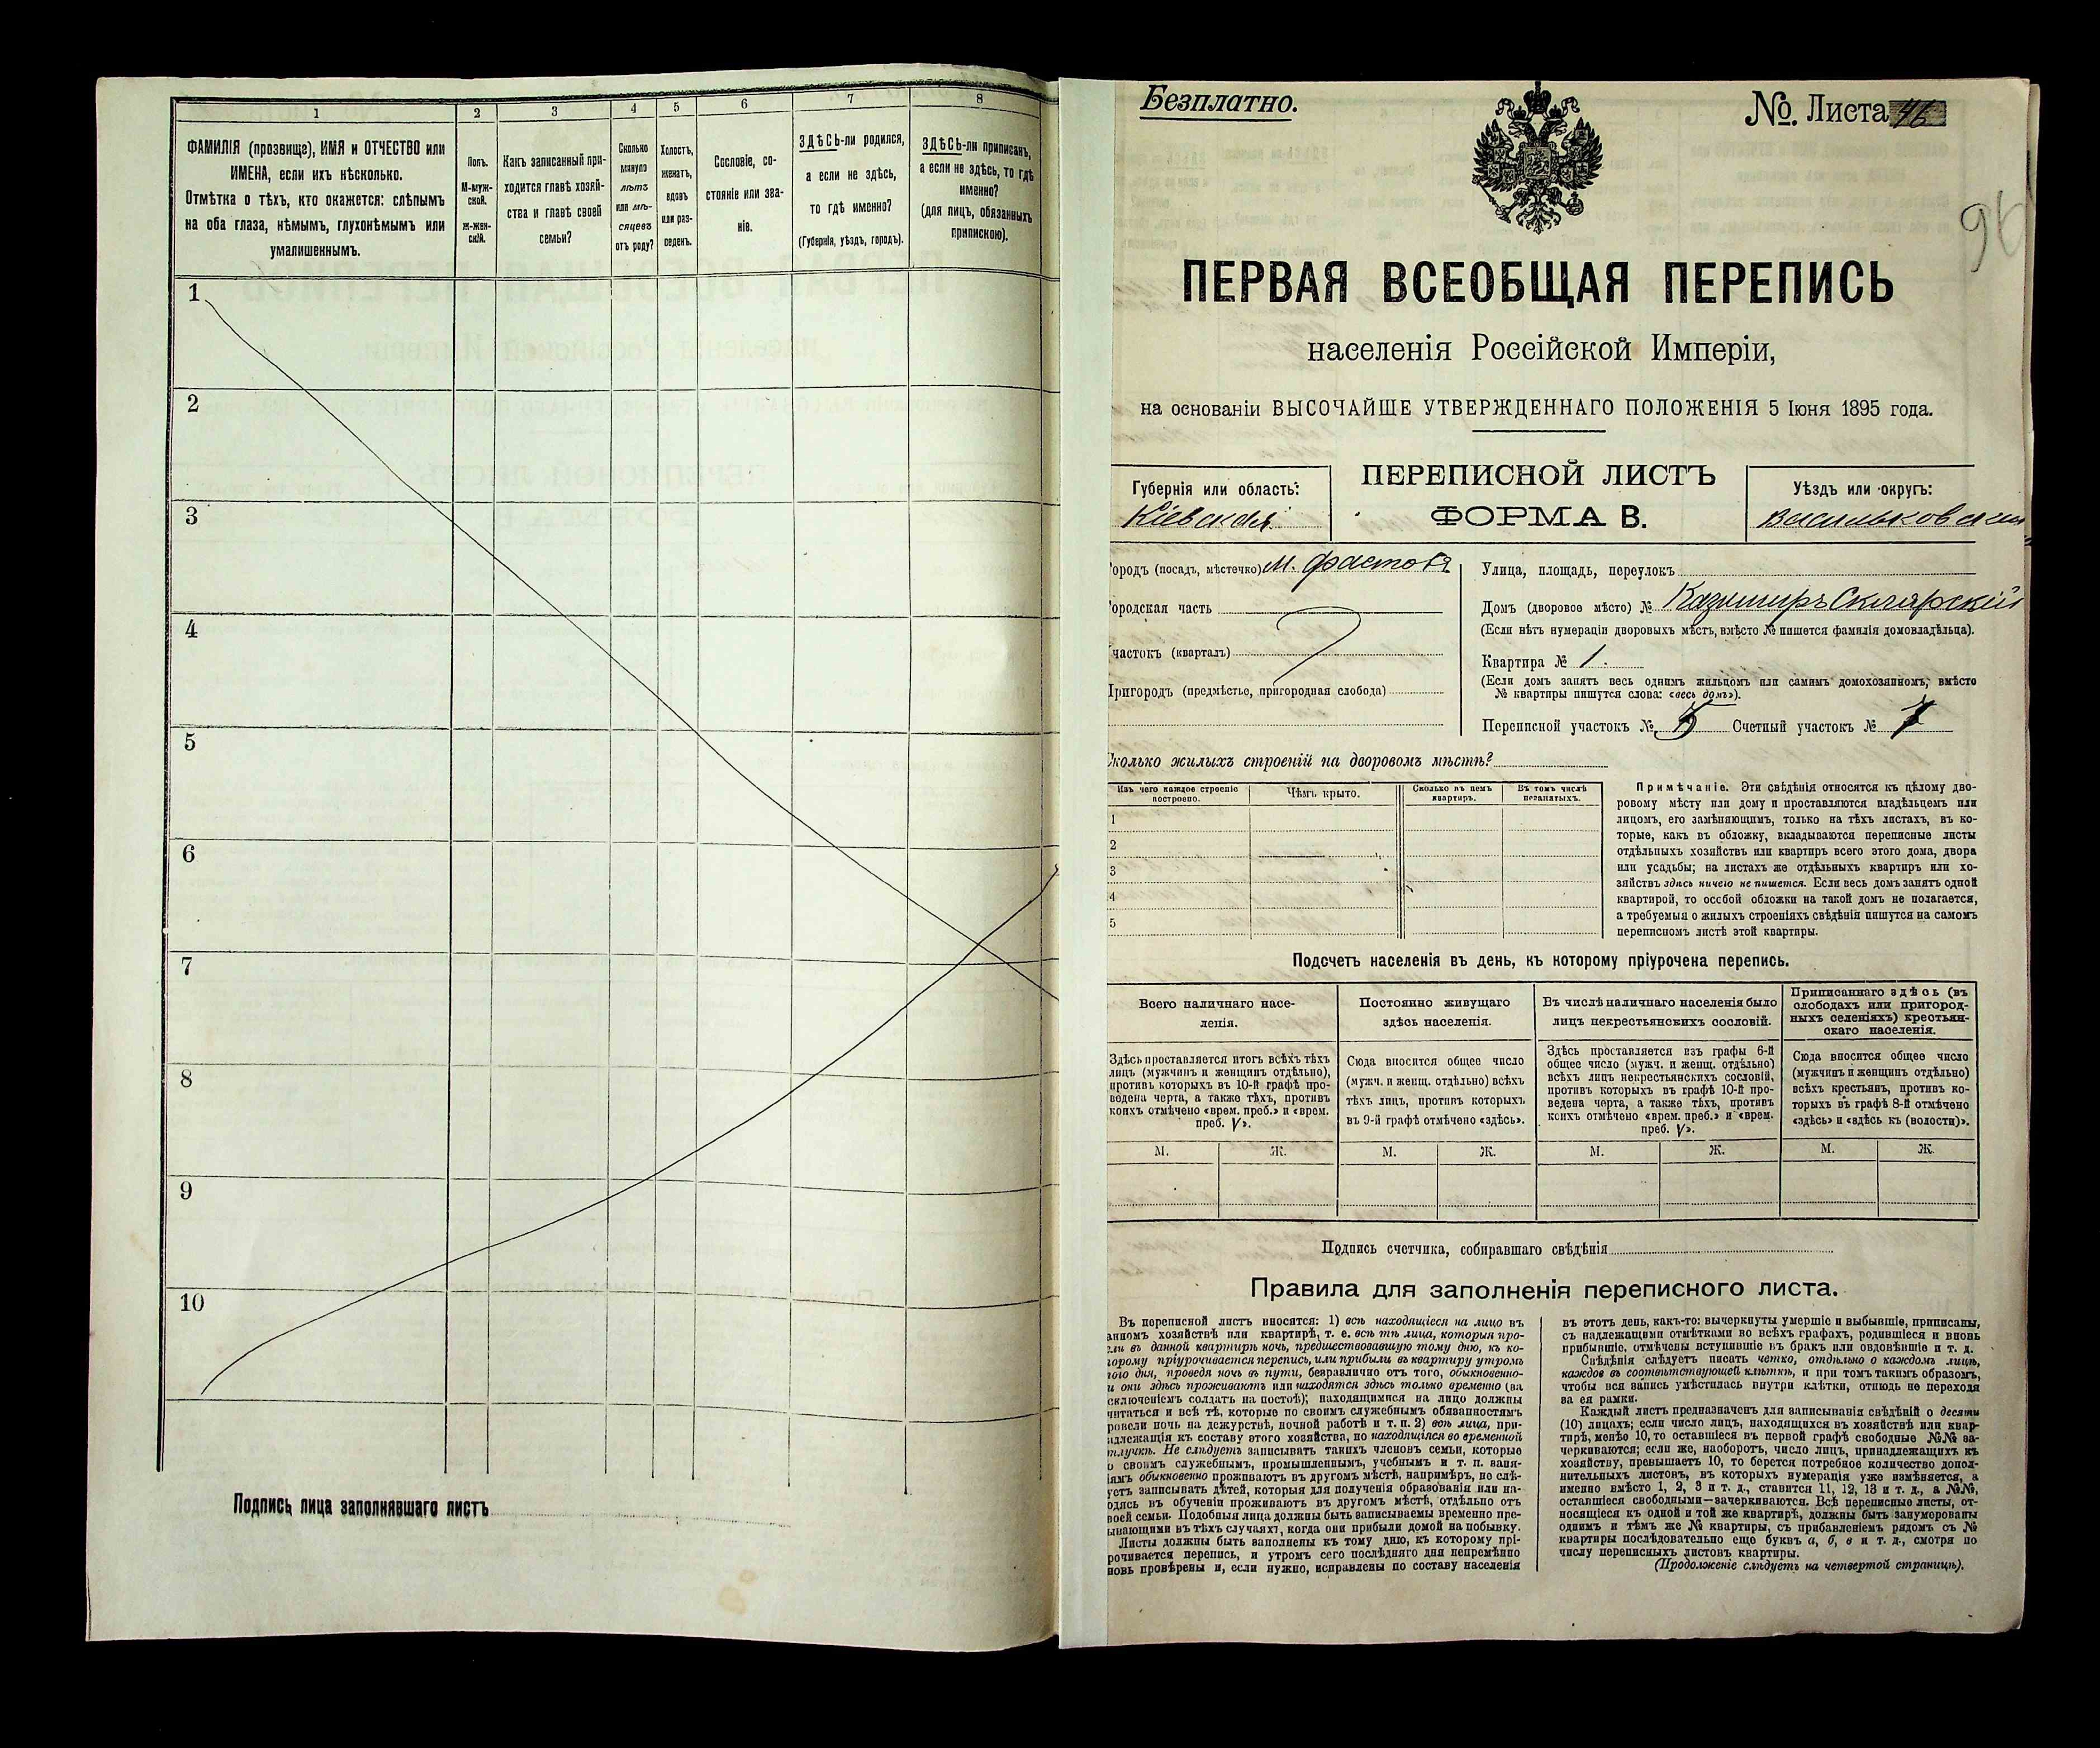 1
2
3
4
5
6
7
8
ФАМИЛІЯ (прозвище), ИМЯ и ОТЧЕСТВО или
ИМЕНА, если ихъ нѣсколько.
Отмѣтка о тѣхъ, кто окажется: слѣпымъ
на оба глаза, нѣмымъ, глухонѣмымъ или
умалишеннымъ.
Полъ.
М-муж-
ской.
ж-жен-
скій.
Какъ записанный при-
ходится главѣ хозяй-
ства и главѣ своей
семьи?
Сколько
минуло
лѣтъ
или мѣ-
сяцевъ
отъ роду?
Холостъ,
женатъ,
вдовъ
или раз-
веденъ.
Сословіе, со-
стояніе или зва-
ніе.
ЗДѢСЬ-ли родился,
а если не здѣсь,
то гдѣ именно?
(Губернія, уѣздъ, городъ).
ЗДѢСЬ-ли приписанъ,
а если не здѣсь, то гдѣ
именно?
(для лицъ, обязанныхъ
припискою).
1
2
3
4
5
6
7
8
9
10
Подпись лица заполнявшаго листъ
Безплатно.
№. Листа 46
96
ПЕРВАЯ ВСЕОБЩАЯ ПЕРЕПИСЬ
населенія Россійской Имперіи,
на основаніи ВЫСОЧАЙШЕ УТВЕРЖДЕННАГО ПОЛОЖЕНІЯ 5 Іюня 1895 года.
Губернія или область:
Кіевская
ПЕРЕПИСНОЙ ЛИСТЪ
ФОРМА В.
Уѣздъ или округъ:
Васильковскій
ородъ (посадъ, мѣстечко) м. Фастовъ
ородская часть
частокъ (кварталъ)
ригородъ (предмѣстье, пригородная слобода)
Улица, площадь, переулокъ
Домъ (дворовое мѣсто) № Казимиръ Склярскій
(Если нѣтъ нумераціи дворовыхъ мѣстъ, вмѣсто № пишется фамилія домовладѣльца).
Квартира № 1.
(Если домъ занятъ весь однимъ жильцомъ или самимъ домохозяиномъ, вмѣсто
№ квартиры пишутся слова: «весь домъ»).
Переписной участокъ № 5 Счетный участокъ № 7
Сколько жилыхъ строеній на дворовомъ мѣстѣ?
Изъ чего каждое строеніе
построено.
Чѣмъ крыто.
Сколько въ немъ
квартиръ.
Въ томъ числѣ
незанятыхъ.
1
2
3
4
5
Примѣчаніе. Эти свѣдѣнія относятся къ цѣлому дво-
ровому мѣсту или дому и проставляются владѣльцемъ или
лицомъ, его замѣняющимъ, только на тѣхъ листахъ, въ ко-
торые, какъ въ обложку, вкладываются переписные листы
отдѣльныхъ хозяйствъ или квартиръ всего этого дома, двора
или усадьбы; на листахъ же отдѣльныхъ квартиръ или хо-
зяйствъ здѣсь ничего не пишется. Если весь домъ занятъ одной
квартирой, то особой обложки на такой домъ не полагается,
а требуемыя о жилыхъ строеніяхъ свѣдѣнія пишутся на самомъ
переписномъ листѣ этой квартиры.
Подсчетъ населенія въ день, къ которому пріурочена перепись.
Всего наличнаго насе-
ленія.
Постоянно живущаго
здѣсь населенія.
Въ числѣ наличнаго населенія было
лицъ некрестьянскихъ сословій.
Приписаннаго здѣсь (въ
слободахъ или пригород-
ныхъ селеніяхъ) крестьян-
скаго населенія.
Здѣсь проставляется итогъ всѣхъ тѣхъ
лицъ (мужчинъ и женщинъ отдѣльно),
противъ которыхъ въ 10-й графѣ про-
ведена черта, а также тѣхъ, противъ
коихъ отмѣчено «врем. преб.» и «врем.
преб. V».
Сюда вносится общее число
(мужч. и женщ. отдѣльно) всѣхъ
тѣхъ лицъ, противъ которыхъ
въ 9-й графѣ отмѣчено «здѣсь».
Здѣсь проставляется изъ графы 6-й
общее число (мужч. и женщ. отдѣльно)
всѣхъ лицъ некрестьянскихъ сословій,
противъ которыхъ въ графѣ 10-й про-
ведена черта, а также тѣхъ, противъ
коихъ отмѣчено «врем. преб.» и «врем.
преб. V».
Сюда вносится общее число
(мужчинъ и женщинъ отдѣльно)
всѣхъ крестьянъ, противъ ко-
торыхъ въ графѣ 8-й отмѣчено
«здѣсь» и «здѣсь къ (волости)».
М. Ж. М. Ж. М. Ж. М. Ж.
Подпись счетчика, собиравшаго свѣдѣнія
Правила для заполненія переписного листа.
Въ переписной листъ вносятся: 1) всѣ находящіеся на лицо въ
анномъ хозяйствѣ или квартирѣ, т. е. всѣ тѣ лица, которыя про-
ели въ данной квартирѣ ночь, предшествовавшую тому дню, къ ко-
торому пріурочивается перепись, или прибыли въ квартиру утромъ
того дня, проведя ночь въ пути, безразлично отъ того, обыкновенно-
и они здѣсь проживаютъ или находятся здѣсь только временно (за
сключеніемъ солдатъ на постоѣ); находящимися на лицо должны
читаться и всѣ тѣ, которые по своимъ служебнымъ обязанностямъ
ровели ночь на дежурствѣ, ночной работѣ и т. п. 2) всѣ лица, при-
адлежащія къ составу этого хозяйства, но находящіяся во временной
тлучкѣ. Не слѣдуетъ записывать такихъ членовъ семьи, которые
о своимъ служебнымъ, промышленнымъ, учебнымъ и т. п. заня-
іямъ обыкновенно проживаютъ въ другомъ мѣстѣ, напримѣръ, не слѣ-
уетъ записывать дѣтей, которыя для полученія образованія или на-
одясь въ обученіи проживаютъ въ другомъ мѣстѣ, отдѣльно отъ
воей семьи. Подобныя лица должны быть записываемы временно пре-
ывающими въ тѣхъ случаяхъ, когда они прибыли домой на побывку.
Листы должны быть заполнены къ тому дню, къ которому прі-
рочивается перепись, и утромъ сего послѣдняго дня непремѣнно
новь провѣрены и, если нужно, исправлены по составу населенія
въ этотъ день, какъ-то: вычеркнуты умершіе и выбывшіе, приписаны,
съ надлежащими отмѣтками во всѣхъ графахъ, родившіеся и вновь
прибывшіе, отмѣчены вступившіе въ бракъ или овдовѣвшіе и т. д.
Свѣдѣнія слѣдуетъ писать четко, отдѣльно о каждомъ лицѣ,
каждое въ соотвѣтствующей клѣткѣ, и при томъ такимъ образомъ,
чтобы вся запись умѣстилась внутри клѣтки, отнюдь не переходя
за ея рамки.
Каждый листъ предназначенъ для записыванія свѣдѣній о десяти
(10) лицахъ; если число лицъ, находящихся въ хозяйствѣ или квар-
тирѣ, менѣе 10, то оставшіеся въ первой графѣ свободные №№ за-
черкиваются; если же, наоборотъ, число лицъ, принадлежащихъ къ
хозяйству, превышаетъ 10, то берется потребное количество допол-
нительныхъ листовъ, въ которыхъ нумерація уже измѣняется, а
именно вмѣсто 1, 2, 3 и т. д., ставится 11, 12, 13 и т. д., а №№,
оставшіеся свободными—зачеркиваются. Всѣ переписные листы, от-
носящіеся къ одной и той же квартирѣ, должны быть занумерованы
однимъ и тѣмъ же № квартиры, съ прибавленіемъ рядомъ съ №
квартиры послѣдовательно еще буквъ а, б, в и т. д., смотря по
числу переписныхъ листовъ квартиры.
(Продолженіе слѣдуетъ на четвертой страницѣ).